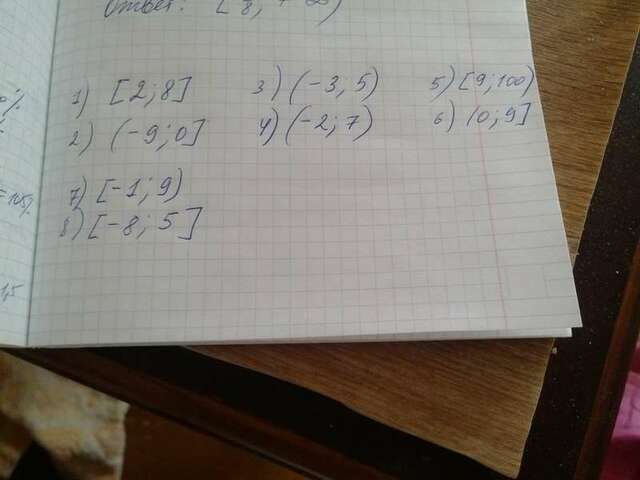 Ответ: [ 8; + ∞)
1) [2; 8] 3) (-3; 5) 5) [9; 100)
2) (-9; 0] 4) (-2; 7) 6) (0; 9]
7) [-1; 9)
8) [-8; 5]